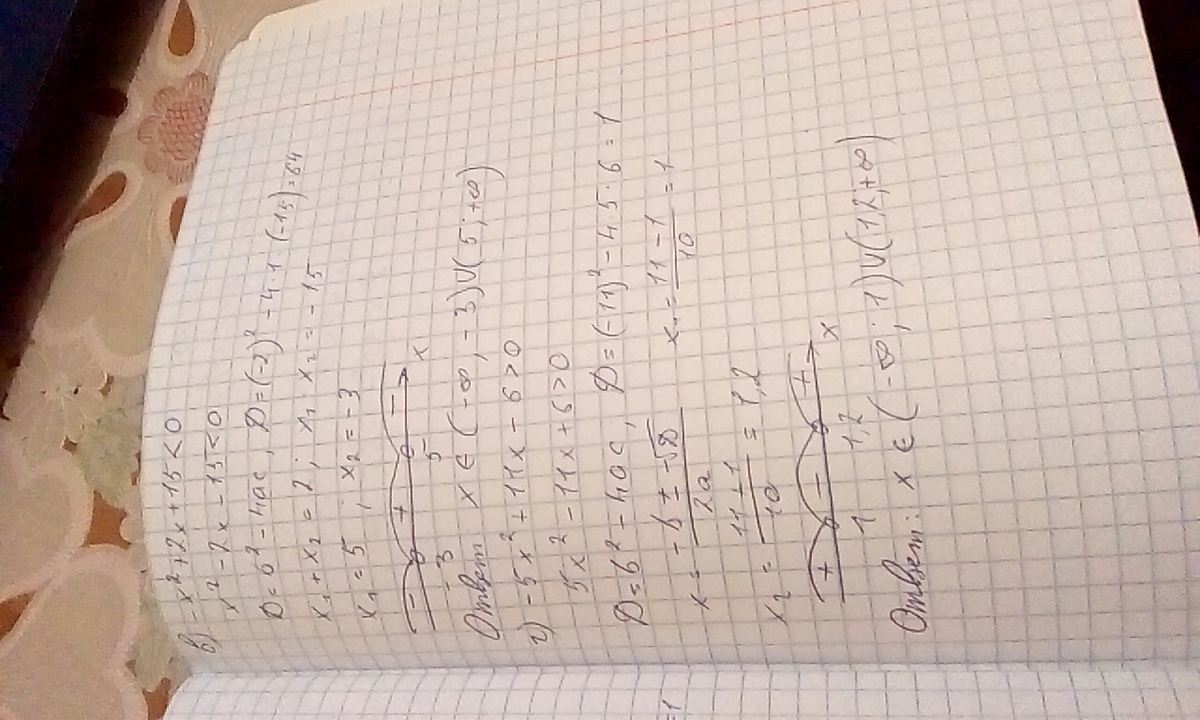 в) -x² + 2x + 15 < 0
x² - 2x - 15 < 0
D = b² - 4ac, D = (-2)² - 4·1·(-15) = 64
x₁ + x₂ = 2; x₁ · x₂ = -15
x₁ = 5; x₂ = -3
- + - x
-3 5
Ответ x ∈ (-∞, -3) ∪ (5; +∞)
г) -5x² + 11x - 6 > 0
5x² - 11x + 6 > 0
D = b² - 4ac, D = (-11)² - 4·5·6 = 1
x = -b ± √D / 2a x₁ = 11 - 1 / 10 = 1
x₂ = 11 + 1 / 10 = 1,2
+ - + x
1 1,2
Ответ: x ∈ (-∞; 1) ∪ (1,2; +∞)
=1